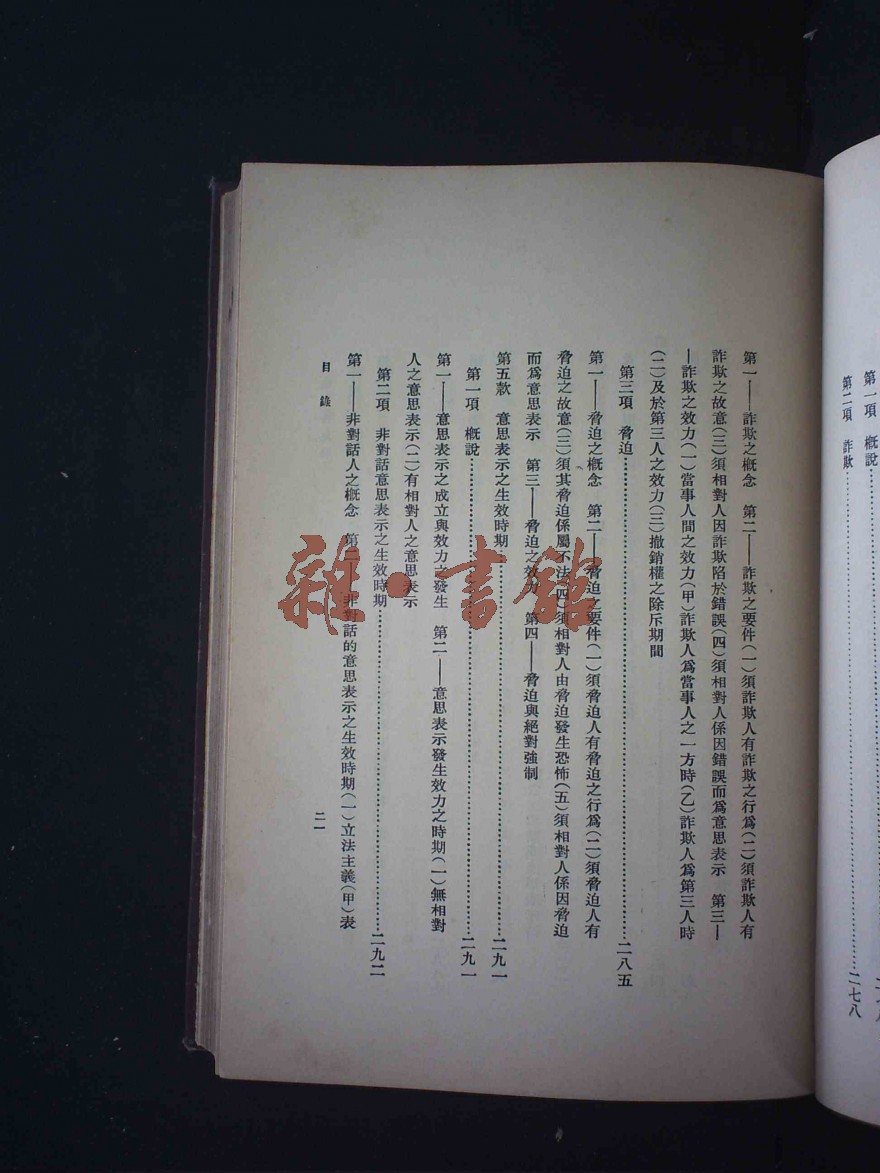 第一項　槪說
第二項　詐欺……二七八
第一——詐欺之槪念　第二——詐欺之要件(一)須詐欺人有詐欺之行爲(二)須詐欺人有
詐欺之故意(三)須相對人因詐欺陷於錯誤(四)須相對人係因錯誤而爲意思表示　第三—
—詐欺之效力(一)當事人間之效力(甲)詐欺人爲當事人之一方時(乙)詐欺人爲第三人時
(二)及於第三人之效力(三)撤銷權之除斥期間
第三項　脅迫……二八五
第一——脅迫之槪念　第二——脅迫之要件(一)須脅迫人有脅迫之行爲(二)須脅迫人有
脅迫之故意(三)須其脅迫係屬不法(四)須相對人由脅迫發生恐怖(五)須相對人係因脅迫
而爲意思表示　第三——脅迫之效力　第四——脅迫與絕對強制
第五款　意思表示之生效時期……二九一
第一項　槪說……二九一
第一——意思表示之成立與效力之發生　第二——意思表示發生效力之時期(一)無相對
人之意思表示(二)有相對人之意思表示
第二項　非對話意思表示之生效時期……二九二
第一——非對話人之槪念　第二——非對話的意思表示之生效時期(一)立法主義(甲)表
目錄
二一
雜·書館